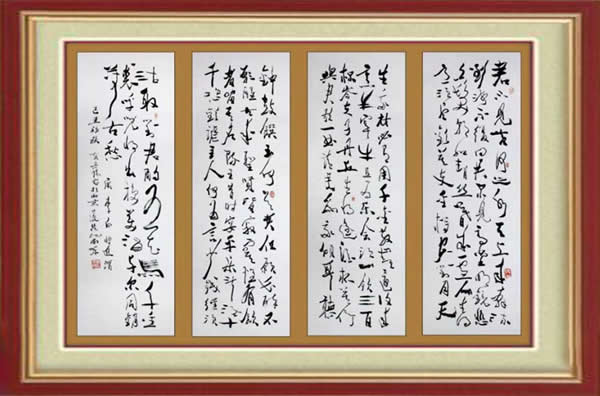 君不见黄河之水天上来奔流
到海不复回君不见高堂明镜悲
白发朝如青丝暮成雪人生得
意须尽欢莫使金樽空对月天
生我材必有用千金散尽还复来
烹羊宰牛且为乐会须一饮三百
杯岑夫子丹丘生将进酒杯莫停
与君歌一曲请君为我倾耳听
钟鼓馔玉何足贵但愿长醉不
愿醒古来圣贤皆寂寞惟有饮
者留其名陈王昔时宴平乐斗酒十
千恣欢谑主人何为言少钱径须
沽取对君酌五花马千金
裘呼儿将出换美酒与尔同销
万古愁
唐李白将进酒
己丑初秋